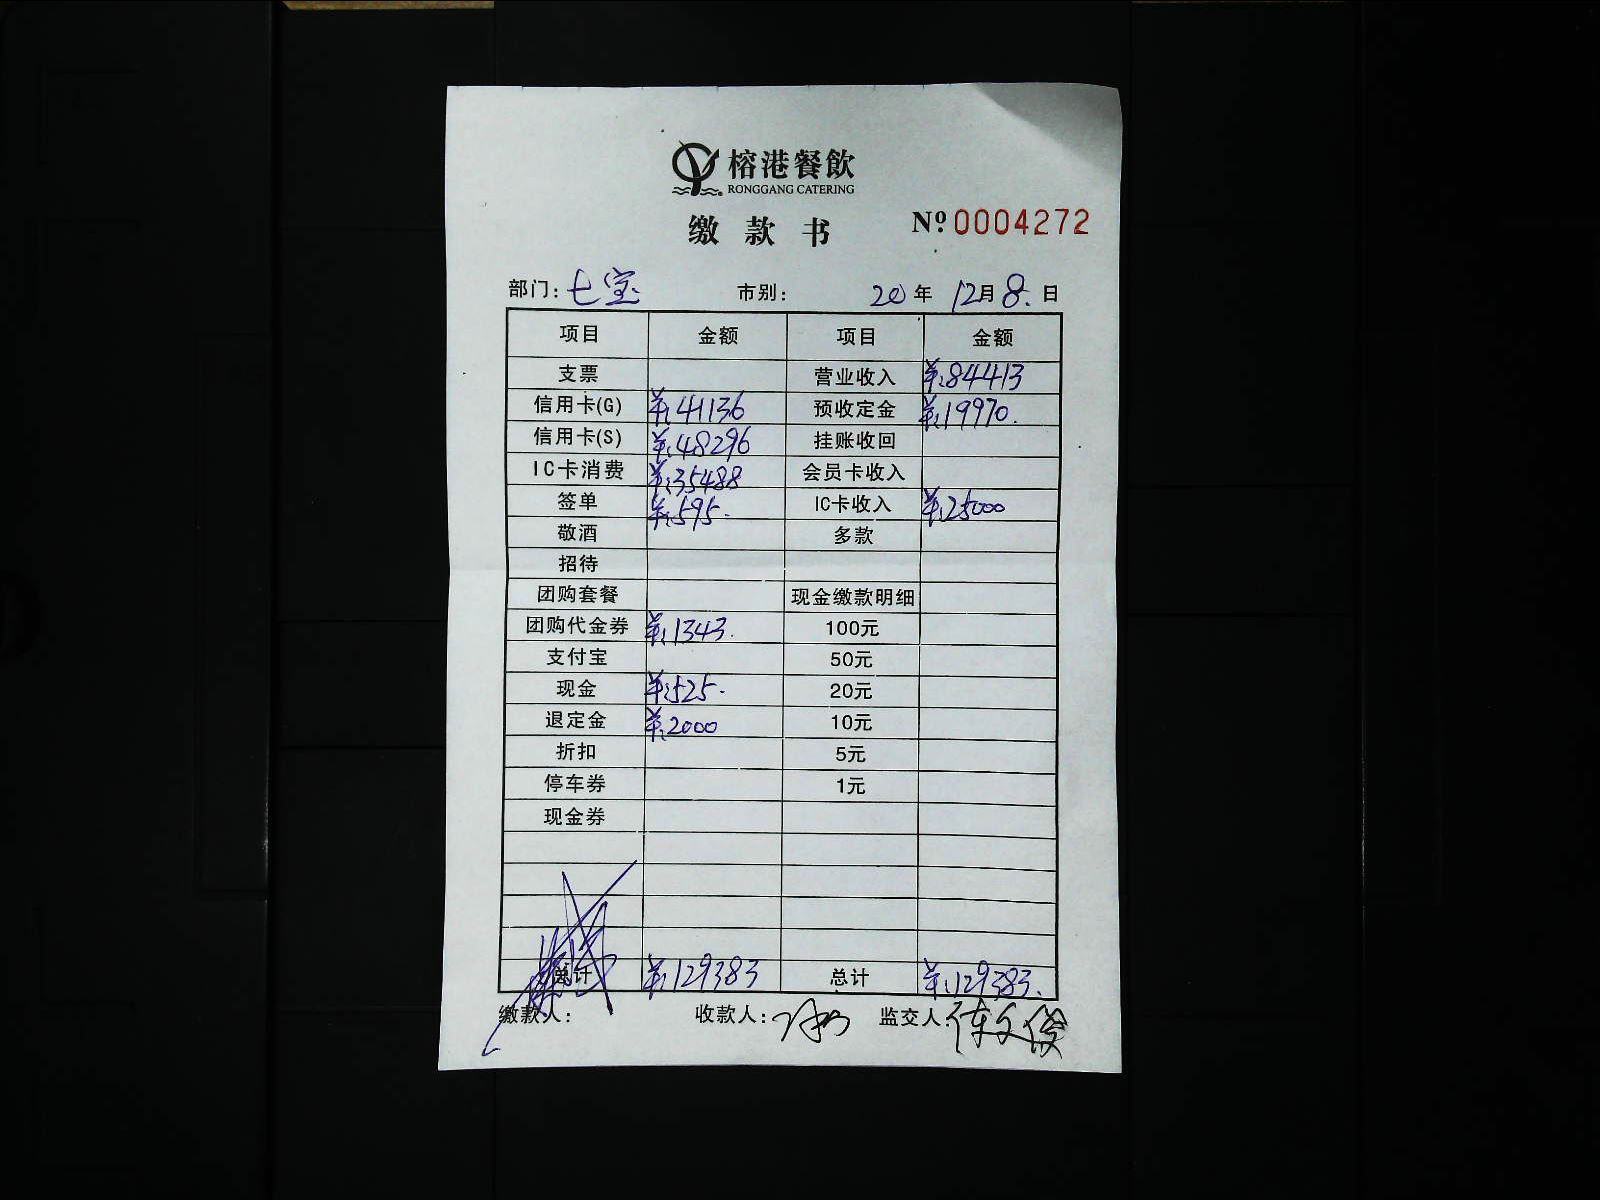 榕港餐飲
RONGGANG CATERING
缴款书 Nº.0004272
部门:七宝 市别: 20年 12月8.日
项目 金额 项目 金额
支票 营业收入 ¥:84413
信用卡(G) ¥:41136 预收定金 ¥:19970.
信用卡(S) ¥:48296 挂账收回
IC卡消费 ¥:35488 会员卡收入
签单 ¥:595. IC卡收入 ¥:25000
敬酒 多款
招待
团购套餐 现金缴款明细
团购代金券 ¥:1343. 100元
支付宝 50元
现金 ¥:525. 20元
退定金 ¥:2000 10元
折扣 5元
停车券 1元
现金券
总计 ¥:129383 总计 ¥:129383.
缴款人: 收款人: 监交人: